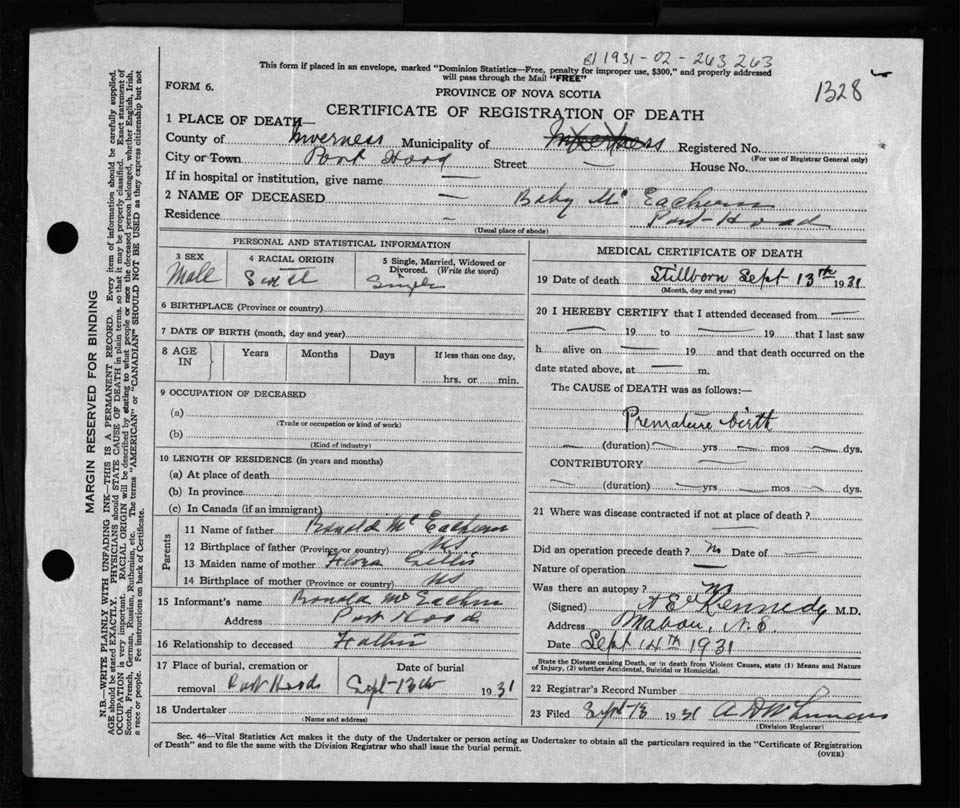 1931-02-263263
This form if placed in an envelope, marked "Dominion Statistics—Free, penalty for improper use, $300," and properly addressed
will pass through the Mail "FREE"
1328
FORM 6.
PROVINCE OF NOVA SCOTIA
CERTIFICATE OF REGISTRATION OF DEATH
1 PLACE OF DEATH—
County of Inverness Municipality of Inverness Registered No.
(For use of Registrar General only)
City or Town Port Hood Street — House No.
If in hospital or institution, give name —
2 NAME OF DECEASED — Baby Mc Eachern
Residence — Port-Hood
(Usual place of abode)
PERSONAL AND STATISTICAL INFORMATION
3 SEX
Male
4 RACIAL ORIGIN
5 Single, Married, Widowed or
Divorced. (Write the word)
Single
6 BIRTHPLACE (Province or country)
7 DATE OF BIRTH (month, day and year)
8 AGE
IN
Years
Months
Days
If less than one day,
hrs. or min.
9 OCCUPATION OF DECEASED
(a)
(Trade or occupation or kind of work)
(b)
(Kind of industry)
10 LENGTH OF RESIDENCE (in years and months)
(a) At place of death
(b) In province
(c) In Canada (if an immigrant)
Parents
11 Name of father Ronald Mc Eachern
12 Birthplace of father (Province or country) NS
13 Maiden name of mother Flora Gillis
14 Birthplace of mother (Province or country) NS
15 Informant's name Ronald Mc Eachern
Address Port Hood
16 Relationship to deceased Father
17 Place of burial, cremation or
removal Port Hood
Date of burial
Sept-13th 1931
18 Undertaker
(Name and address)
MEDICAL CERTIFICATE OF DEATH
19 Date of death Stillborn Sept 13th 1931
(Month, day and year)
20 I HEREBY CERTIFY that I attended deceased from —
— 19 to — 19 that I last saw
h alive on — 19 and that death occurred on the
date stated above, at — m.
The CAUSE of DEATH was as follows:—
Premature birth
— (duration) — yrs — mos — dys.
CONTRIBUTORY —
— (duration) — yrs — mos — dys.
21 Where was disease contracted if not at place of death? —
Did an operation precede death? No Date of —
Nature of operation —
Was there an autopsy? No
(Signed) Kennedy M.D.
Address Mabou, N.S.
Date Sept 14TH 1931
State the Disease causing Death, or in death from Violent Causes, state (1) Means and Nature
of Injury, (2) whether Accidental, Suicidal or Homicidal.
22 Registrar's Record Number
23 Filed Sept 13 1931
(Division Registrar)
Sec. 46—Vital Statistics Act makes it the duty of the Undertaker or person acting as Undertaker to obtain all the particulars required in the "Certificate of Registration
of Death" and to file the same with the Division Registrar who shall issue the burial permit.
(OVER)
MARGIN RESERVED FOR BINDING
N.B.—WRITE PLAINLY WITH UNFADING INK—THIS IS A PERMANENT RECORD. Every item of information should be carefully supplied.
AGE should be stated EXACTLY. PHYSICIANS should STATE CAUSE OF DEATH in plain terms, so that it may be properly classified. Exact statement of
OCCUPATION is very important. RACIAL ORIGIN will be described by stating to what people or race the deceased person belonged, whether English, Irish,
Scotch, French, German, Russian, Ruthenian, etc. The terms "AMERICAN" or "CANADIAN" SHOULD NOT BE USED as they express citizenship but not
a race or people. See instructions on back of Certificate.